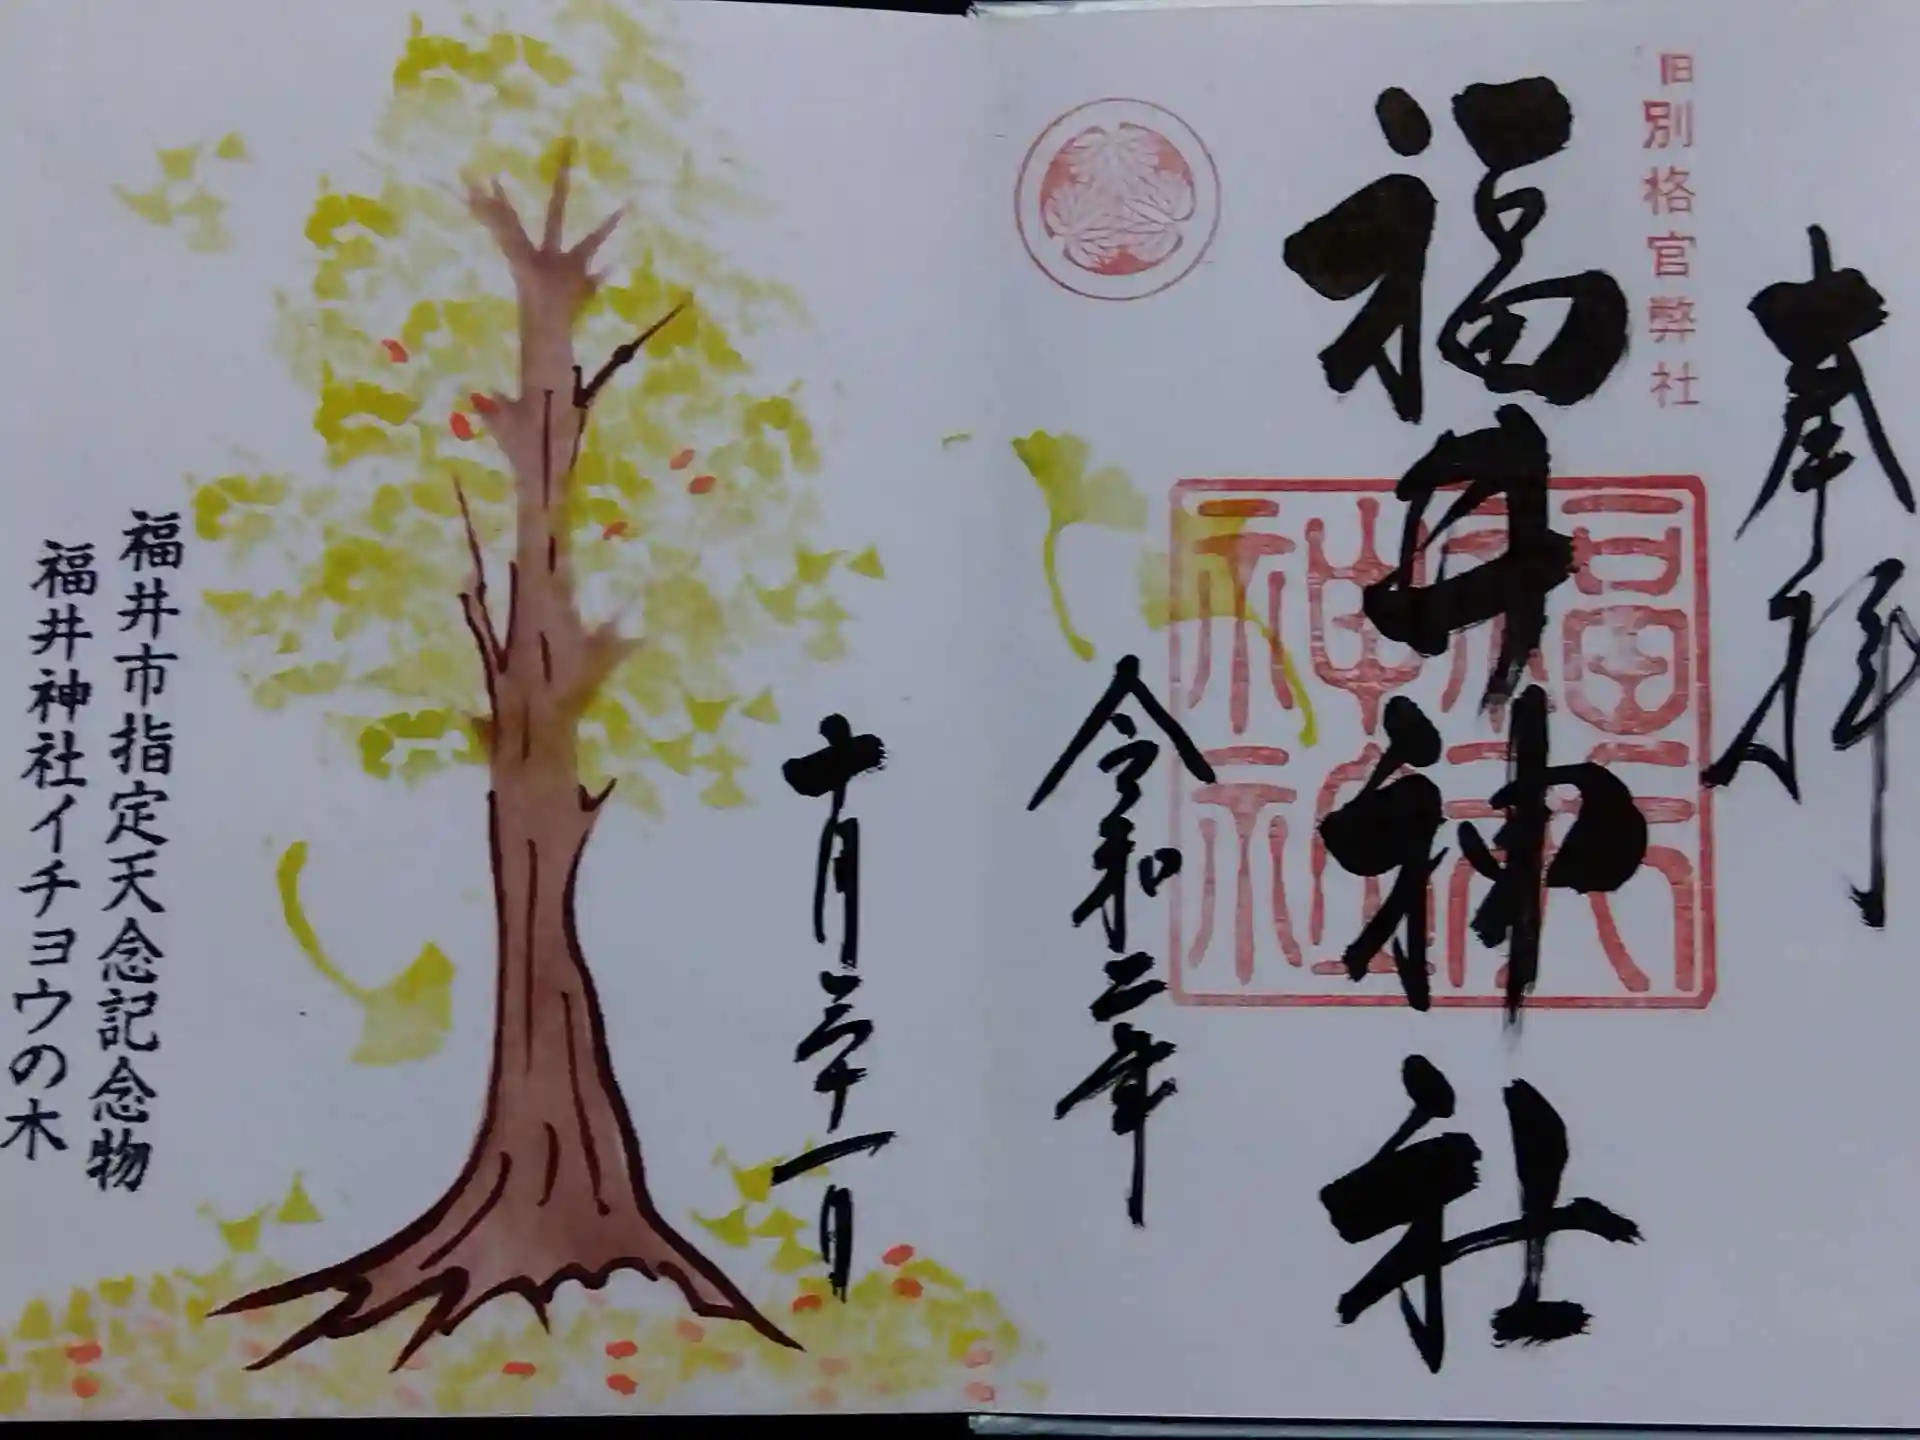 奉拝
旧別格官弊社
福井神社
令和二年
十月三十一日
福井市指定天念記念物
福井神社イチョウの木